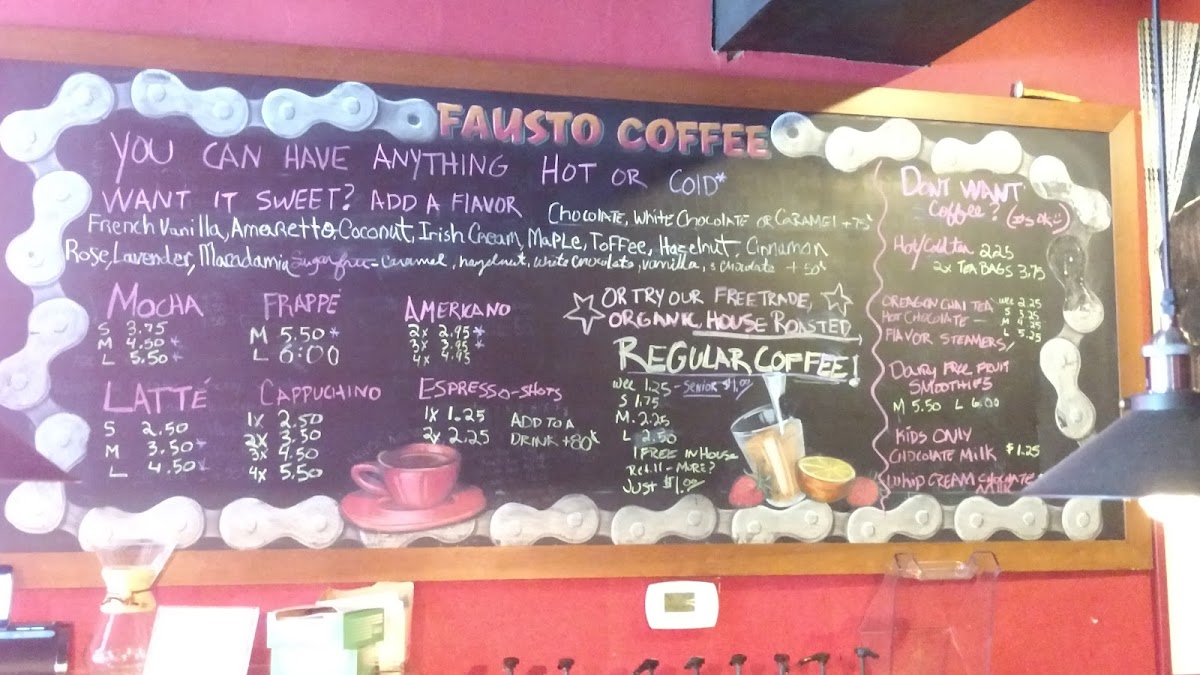 FAUSTO COFFEE
YOU CAN HAVE ANYTHING HOT OR COLD*
WANT IT SWEET? ADD A FLAVOR
CHOCOLATE, WHITE CHOCOLATE OR CARAMEL +75¢
French Vanilla, Amaretto, Coconut, Irish Cream, Maple, Toffee, Hazelnut, Cinnamon
Rose, Lavender, Macadamia Sugar free - caramel, hazelnut, white chocolate, vanilla, + 50¢
MOCHA
S 3.75
M 4.50*
L 5.50*
FRAPPÉ
M 5.50*
L 6:00
AMERICANO
2x 2.95*
3x 3.95*
4x 4.95
LATTÉ
S 2.50
M 3.50*
L 4.50*
CAPPUCHINO
1x 2.50
2x 3.50
3x 4.50
4x 5.50
ESPRESSO-SHOTS
1x 1.25
2x 2.25
ADD TO A
DRINK +80¢
OR TRY OUR FREE TRADE,
ORGANIC, HOUSE ROASTED
REGULAR COFFEE!
WEE 1.25 - SENIOR $1.00
S 1.75
M. 2.25
L 2.50
1 FREE IN HOUSE
Refill - MORE?
JUST $1.00
DONT WANT
Coffee? (its ok:))
Hot/Cold tea 2.25
2x TEA BAGS 3.75
OREAGON CHAI TEA
HOT CHOCOLATE -
FLAVOR STEAMERS/
wee 2.25
S 3.25
M 4.25
L 5.25
DAIRY FREE FRUIT
SMOOTHIES
M 5.50 L 6.00
KIDS ONLY
CHOCOLATE MILK $1.25
WHIP CREAM CHOCOLATE
MILK